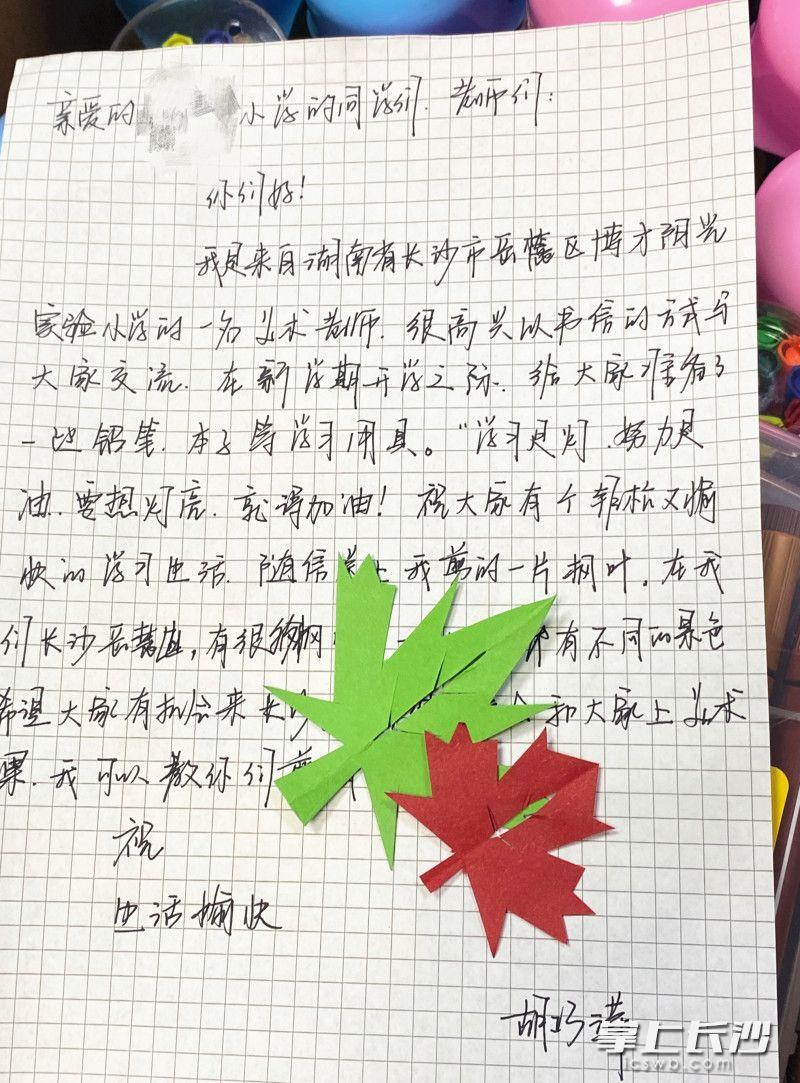 亲爱的 小学的同学们、老师们：
你们好！
我是来自湖南省长沙市岳麓区博才阳光
实验小学的一名美术老师，很高兴以书信的方式与
大家交流，在新学期开学之际，给大家准备了
一些铅笔、本子等学习用具。“学习是灯，努力是
油，要想灯亮，就得加油！祝大家有个轻松又愉
快的学习生活，随信 上我剪的一片树叶，在我
们长沙岳麓山，有很多枫 有不同的景色
希望大家有机会来长沙 和大家上美术
课，我可以教你们
祝
生活愉快
胡巧
掌上长沙
icswb.com